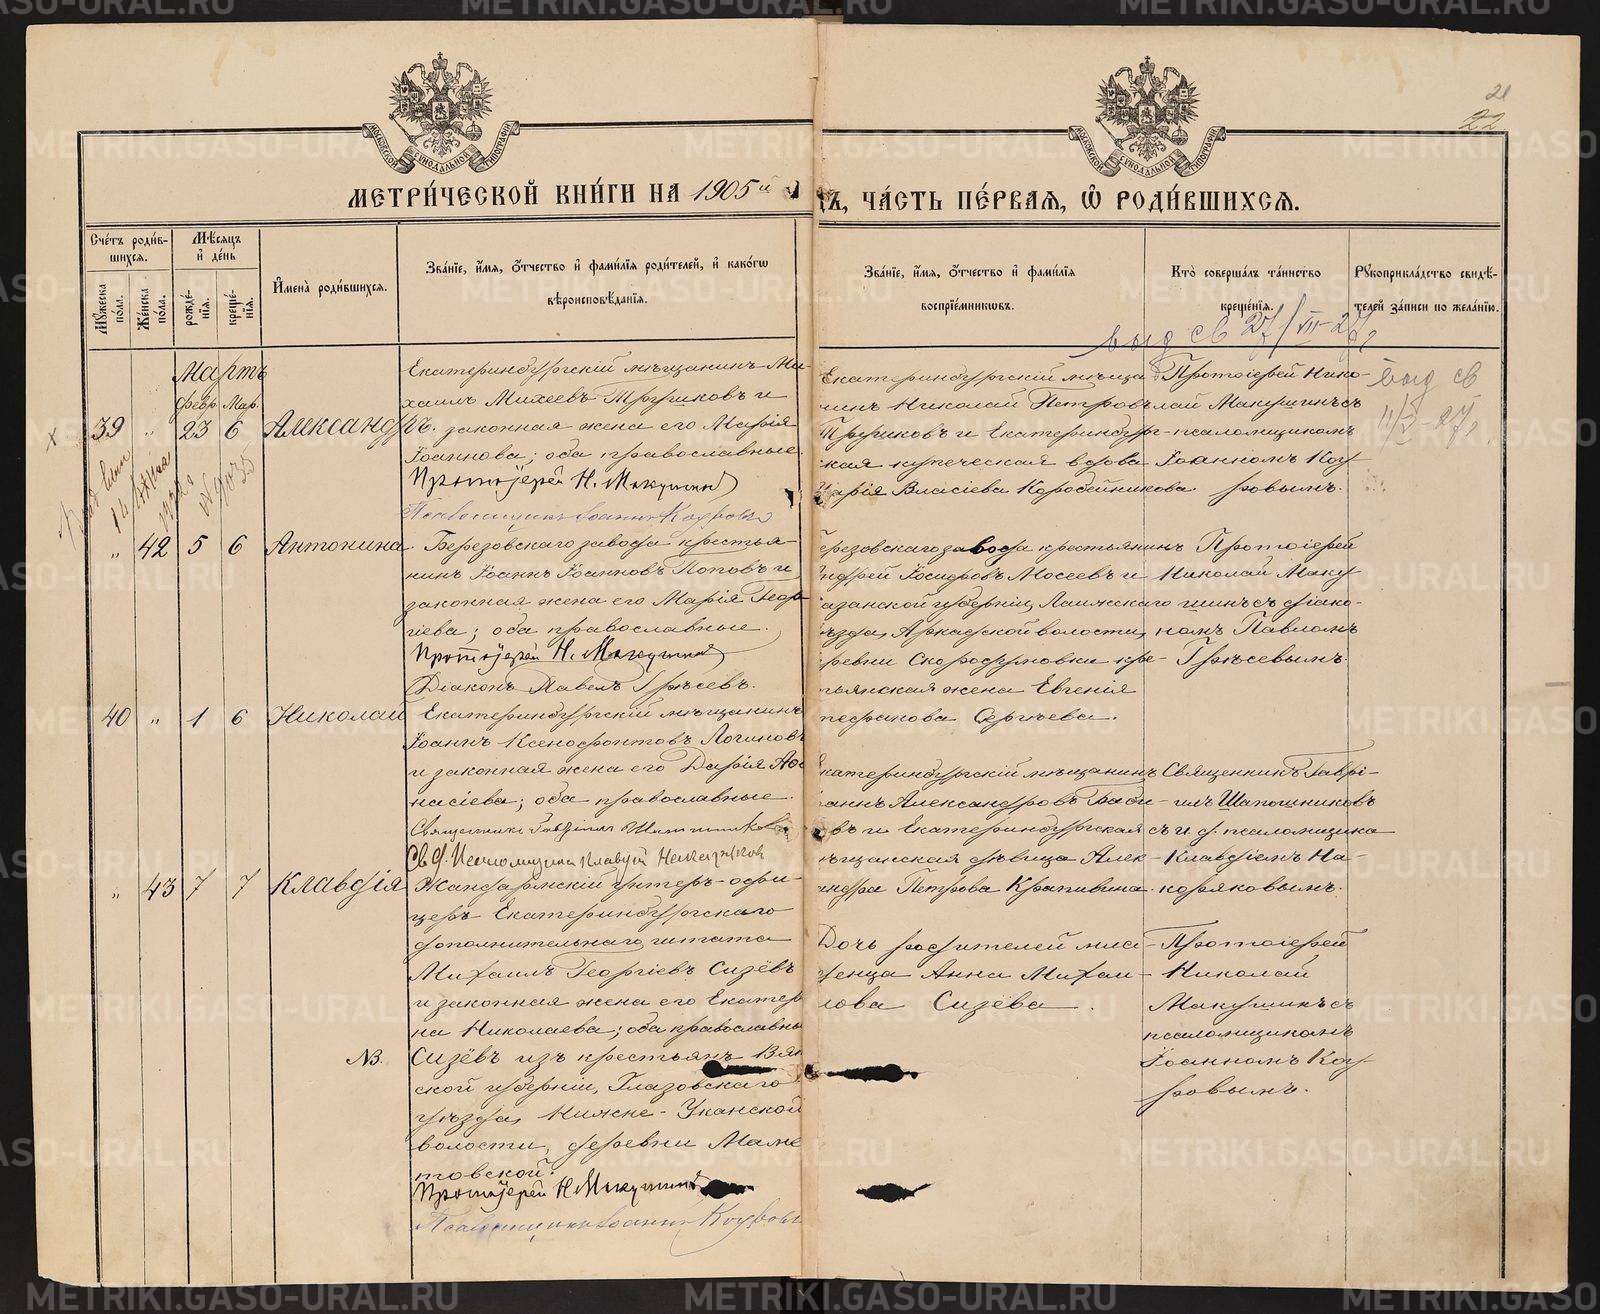 21
22
МЕТРИ́ЧЕСКОЙ КНИ́ГИ НА 1905й
ЧА́СТЬ ПЕ́РВАѦ, Ѽ РОДИ́ВШИХСѦ.
Сче́тъ роди́в-
шихсѧ.
Мꙋ́жеска по́ла.
Же́нска по́ла.
Мѣ́сѧцъ
и҆ де́нь
рожде́-
нїѧ.
креще́-
нїѧ.
И҆мена̀ роди́вшихсѧ.
Зва́нїе, и҆́мѧ, ѻ҆́тчество и҆ фами́лїѧ роди́телей, и҆ како́гѡ
вѣроисповѣ́данїѧ.
Зва́нїе, и҆́мѧ, ѻ҆́тчество и҆ фами́лїѧ
воспрїе́мникѡвъ.
Кто̀ соверша́лъ та́инство
креще́нїѧ.
Рꙋкоприкла́дство свидѣ́-
телей за́писи по жела́нїю.
выд св 27/VII-27
Мартъ
февр Мар.
39 „ 23 6 Александръ.
Екатеринбургскій мѣщанинъ Ми-
хаилъ Михеевъ Трушковъ и
законная жена его Марія
Іоаннова; оба православные.
Протоіерей Н. Макушинъ
Псаломщикъ Іоаннъ
Екатеринбургскій мѣща
нинъ Николай Петровъ
Трушковъ и Екатеринбург-
ская купеческая вдова
Марія Власіева Коробейникова.
Протоіерей Нико-
лай Макушинъ съ
псаломщикомъ
Іоанномъ
ровымъ.
выд св
„ 42 5 6 Антонина.
Березовскаго завода крестья-
нинъ Іоаннъ Іоанновъ Поповъ и
законная жена его Марія Геор
гіева; оба православные.
Протоіерей Н. Макушинъ
Діаконъ Павелъ Грѣсевъ.
ерезовскаго завода крестьянинъ
ндрей Исидоровъ Мосеевъ и
азанской губерніи, Лаишскаго
ѣзда, волости,
ревни Скородумовки кре-
тьянская жена Евгенія
Сергѣева.
Протоіерей
Николай Маку
шинъ съ діако-
номъ Павломъ
Грѣсевымъ.
40 „ 1 6 Николай
Екатеринбургскій мѣщанинъ
Іоаннъ Ксенофонтовъ Логиновъ
и законная жена его Дарія Аѳа
насіева; оба православные.
Священникъ Гавріилъ Шапошниковъ
И. д. Псаломщика Клавдій Накаряковъ
катеринбургскій мѣщанинъ
оаннъ Александровъ Баби-
въ и Екатеринбургская
ѣщанская дѣвица Алек-
андра Петрова Крапивина.
Священникъ Гаврі-
илъ Шапошниковъ
съ и. д. псаломщика
Клавдіемъ На-
коряковымъ.
„ 43 7 7 Клавдія
Жандармскій унтеръ-офи-
церъ Екатеринбургскаго
дополнительнаго штата
Михаилъ Георгіевъ Сизёвъ
и законная жена его Екатери
на Николаева; оба православны
NB. Сизёвъ изъ крестьянъ Вят
ской губерніи, Глазовскаго
уѣзда, Нижне-Уканской
волости, деревни Маме
товской.
Протоіерей Н. Макушинъ
Псаломщикъ Іоаннъ
Дочь родителей мла-
денца Анна Михаи-
лова Сизёва.
Протоіерей
Николай
Макушинъ съ
псаломщикомъ
Іоанномъ
ровымъ.